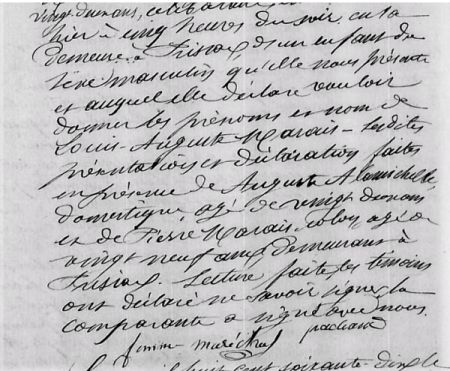 vingt deux ans, célibataire
hier à cinq heures du soir, en sa
demeure à d'un enfant du
sexe masculin qu'elle nous présente
et auquel elle déclare vouloir
donner les prénoms et nom de
Louis-Auguste Marais - Lesdites
présentation et déclaration faites
en présence de Auguste
domestique, agé de vingt deux ans
et de Pierre Marais agé de
vingt neuf ans demeurans à
Lecture faite, les témoins
ont déclaré ne savoir signer, la
comparante a signé avec nous.
femme maréchal
huit cent soixante dix le